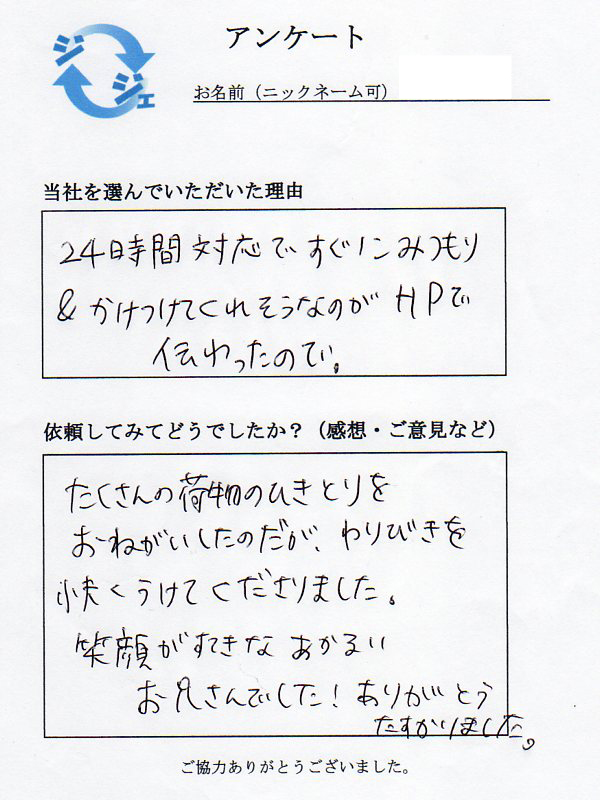 ジジェ
アンケート
お名前（ニックネーム可）
当社を選んでいただいた理由
24時間対応ですぐにみつもり
&かけつけてくれそうなのがHPで
伝わったので。
依頼してみてどうでしたか？（感想・ご意見など）
たくさんの荷物のひきとりを
おねがいしたのだが、わりびきを
快くうけてくださりました。
笑顔がすてきなあかるい
お兄さんでした！ありがとう
たすかりました。
ご協力ありがとうございました。